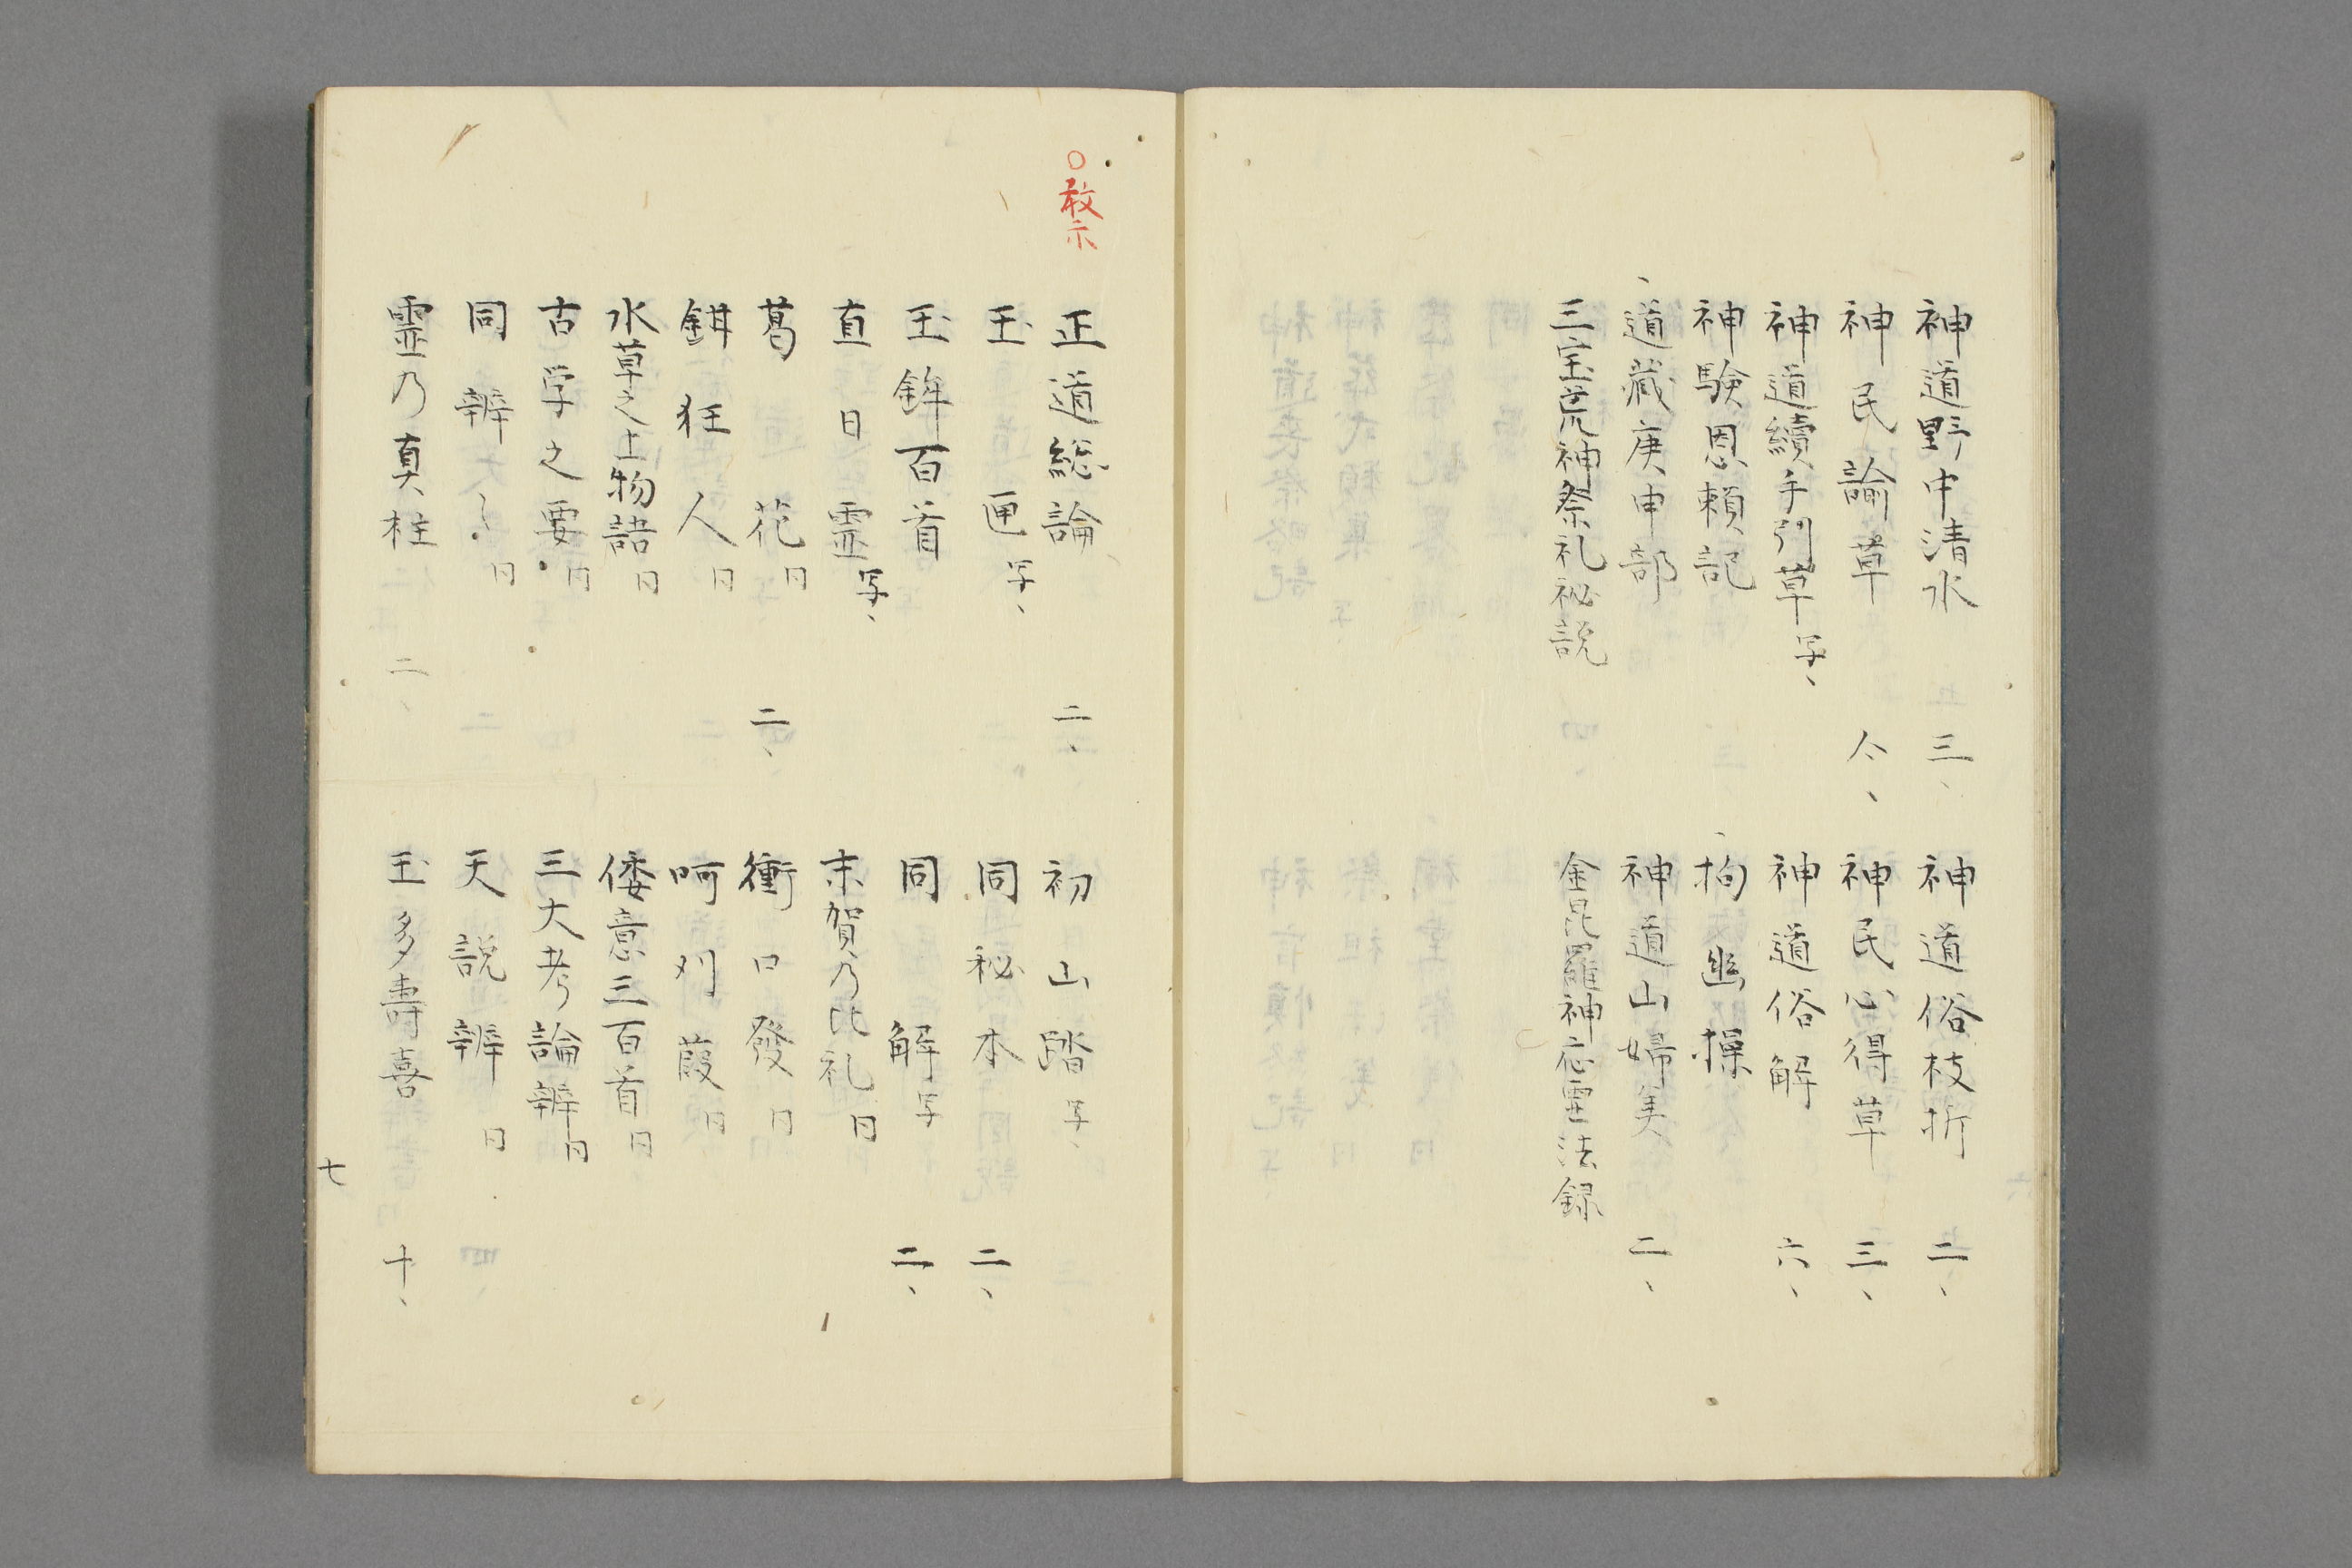 神道野中清水 三、
神道俗枝折 二、
神民諭草 仝、
神民心得草 三、
神道續手引草 写、
神道俗解 六、
神験恩頼記
拘幽操
道蔵庚申部
神道山婦美 二、
三宝荒神祭礼祕説
金毘羅神応霊法録
○教示
正道総論 二、
初山踏 写、
玉匣 写、
同秘本 二、
玉鉾百首
同解 写 二、
直日霊 写、
末賀乃比礼 同
葛花 同 二、
衝口發 同
鉗狂人 同
呵刈葭 同
水草之上物語 同
倭意三百首 同
古学之要 同
三大考論辨 同
同辨〻 同
天説辨 同
霊乃真柱 二、
玉多壽喜 十、
七